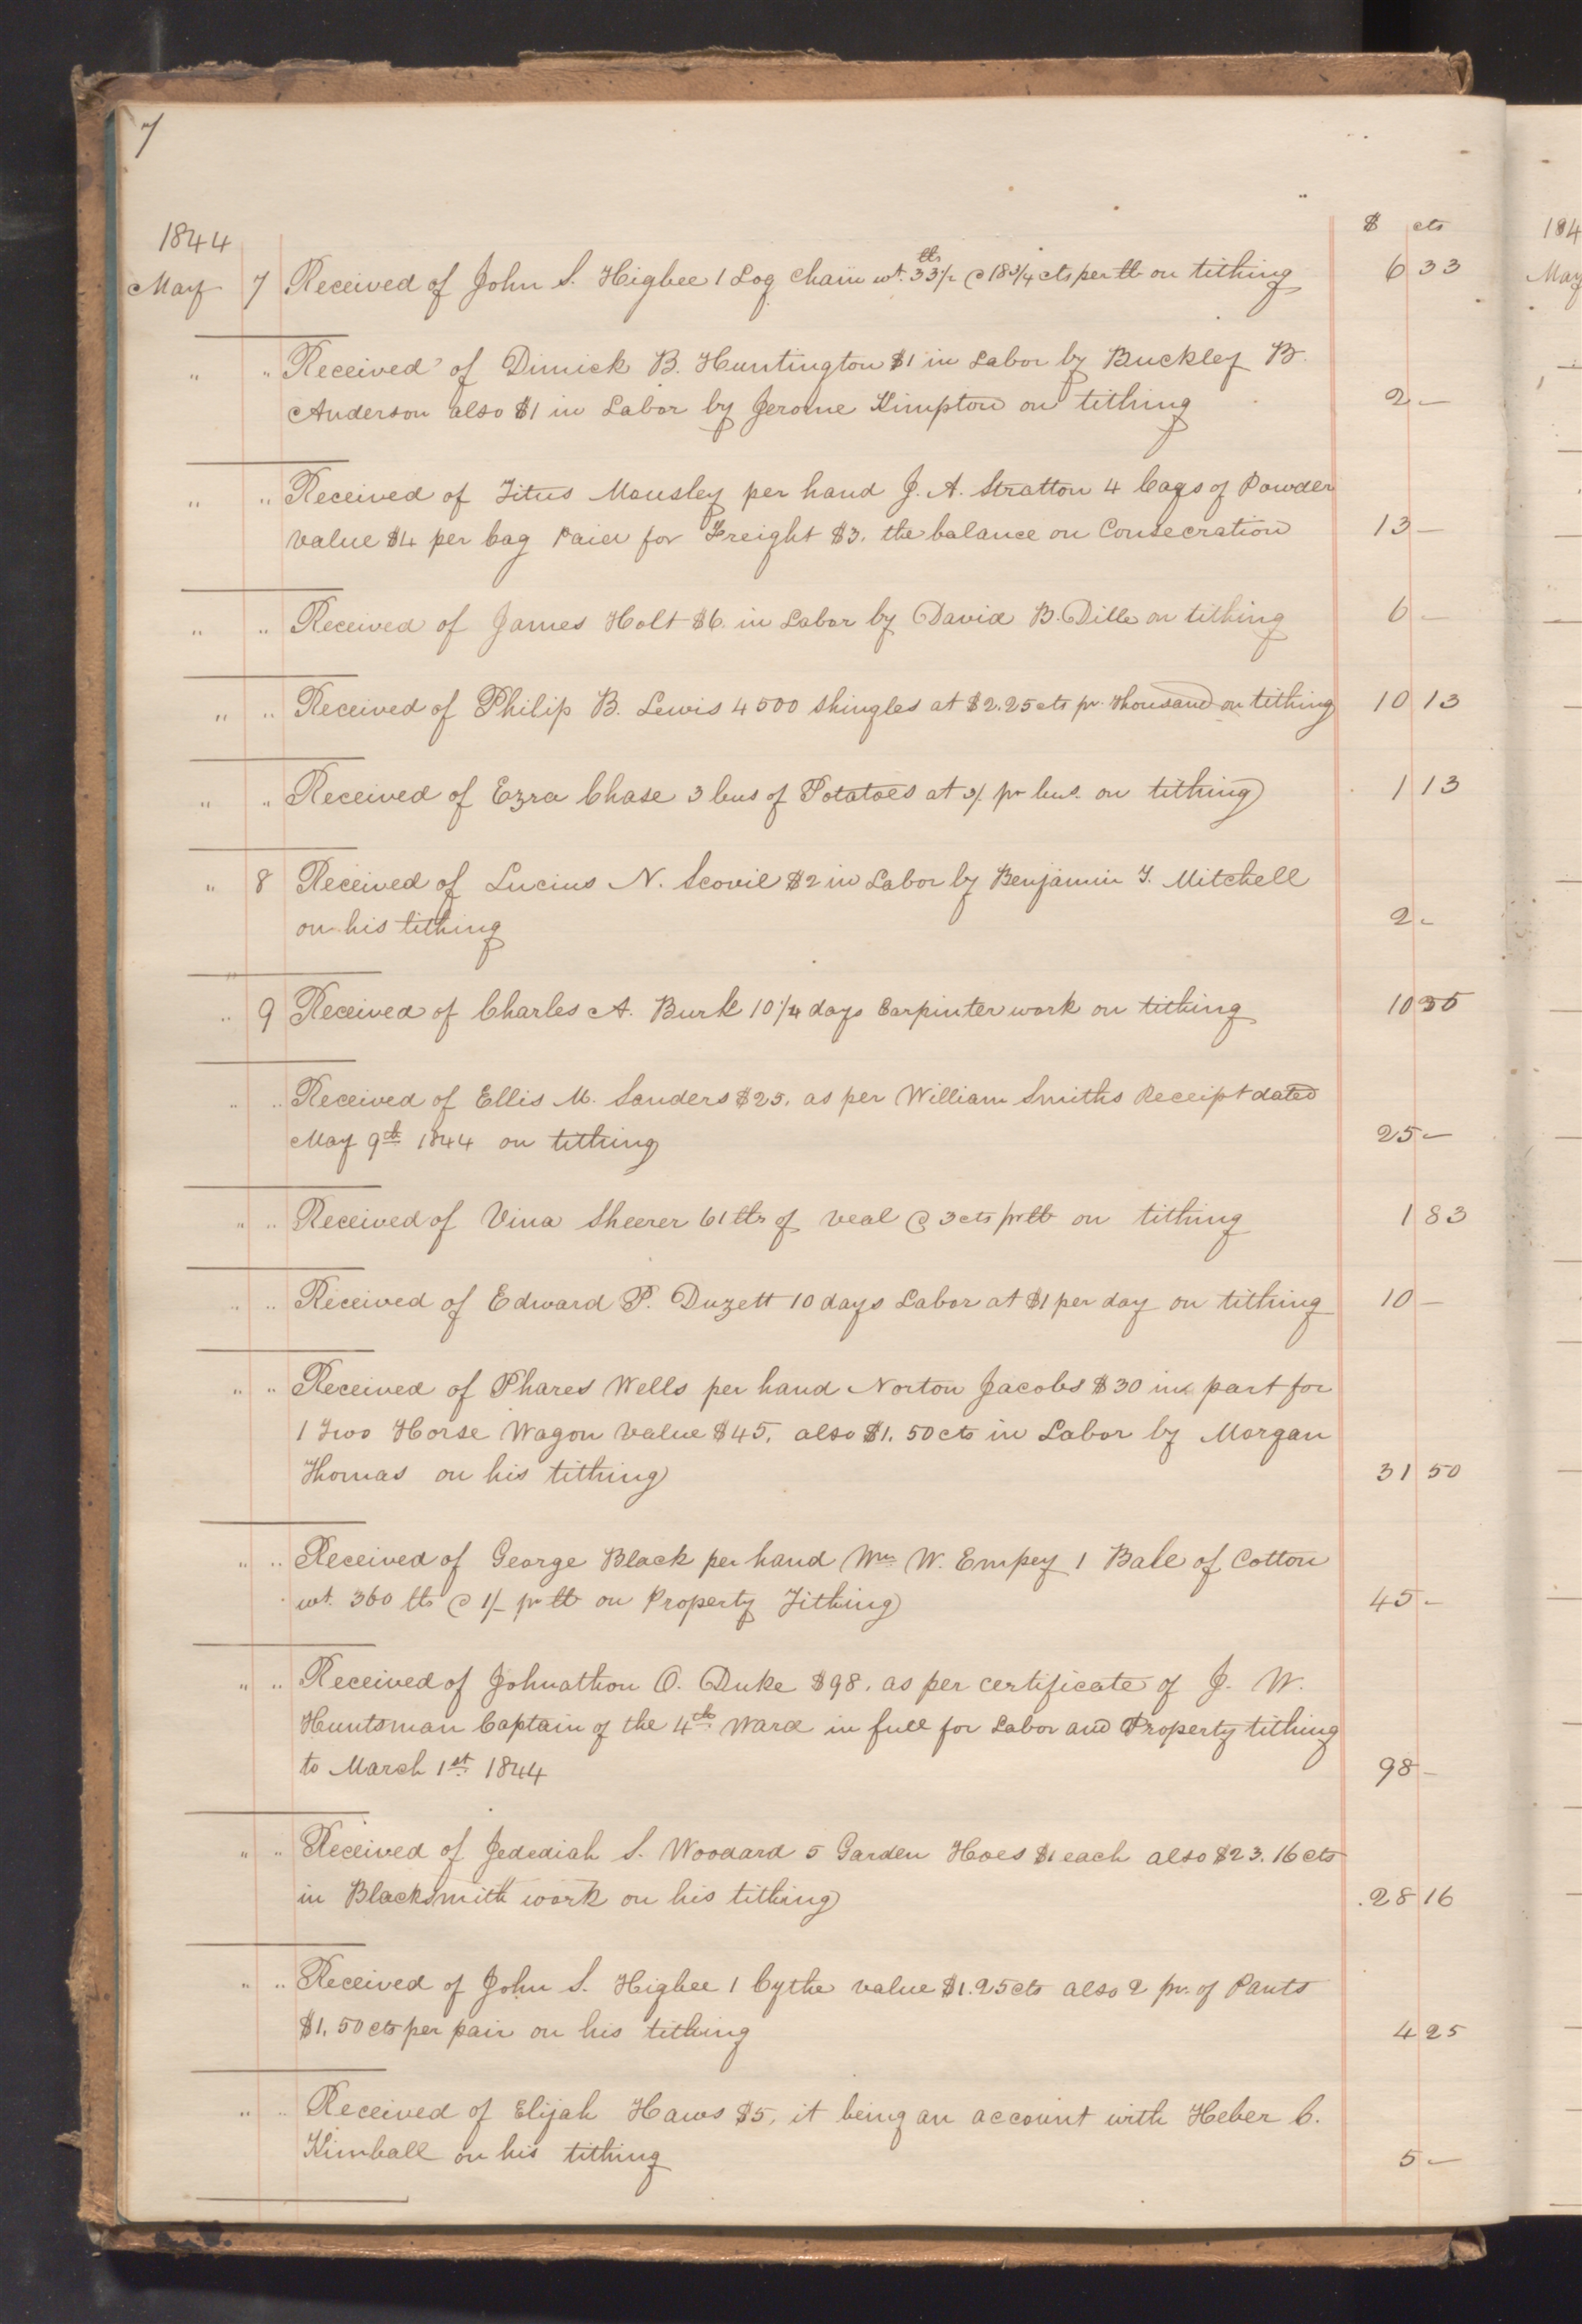 7
$ cts
1844
May 7 Received of John S. Higbee 1 Log Chain wt. 33 1/2 lbs @ 18 3/4 cts per lb on tithing 6 33
" " Received of Dimick B. Huntington $1 in Labor by Buckley B.
Anderson also $1 in Labor by Jerome Kimpton on tithing 2 –
" " Received of Titus Mousley per hand J. A. Stratton 4 bags of Powder
value $4 per bag Paid for Freight $3. the balance on Consecration 13 –
" " Received of James Holt $6. in Labor by David B. Dille on tithing 6 –
" " Received of Philip B. Lewis 4500 Shingles at $2.25 cts pr. thousand on tithing 10 13
" " Received of Ezra Chase 3 bus of Potatoes at 3/ pr bus. on tithing 1 13
" 8 Received of Lucius N. Scovil $2 in Labor by Benjamin T. Mitchell
on his tithing 2 –
" 9 Received of Charles A. Burk 10 1/4 days Carpinter work on tithing 10
" " Received of Ellis M. Sanders $25. as per William Smiths Receipt dated
May 9th 1844 on tithing 25 –
" " Received of Vina Sheerer 61 lbs of veal @ 3 cts pr lb on tithing 1 83
" " Received of Edward P. Duzett 10 days Labor at $1 per day on tithing 10 –
" " Received of Phares Wells per hand Norton Jacobs $30 in part for
1 Two Horse Wagon value $45. also $1.50 cts in Labor by Morgan
Thomas on his tithing 31 50
" " Received of George Black per hand Wm W. Empey 1 Bale of Cotton
wt. 360 lbs @ 1/– pr lb on Property Tithing 45 –
" " Received of Johnathon O. Duke $98. as per certificate of J. W.
Huntsman Captain of the 4th Ward in full for Labor and Property tithing
to March 1st 1844 98 –
" " Received of Jedediah S. Woodard 5 Garden Hoes $1 each also $23.16 cts
in Blacksmith work on his tithing 28 16
" " Received of John S. Higbee 1 Cythe value $1.25 cts also 2 pr. of Pants
$1.50 cts per pair on his tithing 4 25
" " Received of Elijah Haws $5, it being an account with Heber C.
Kimball on his tithing 5 –
184
May